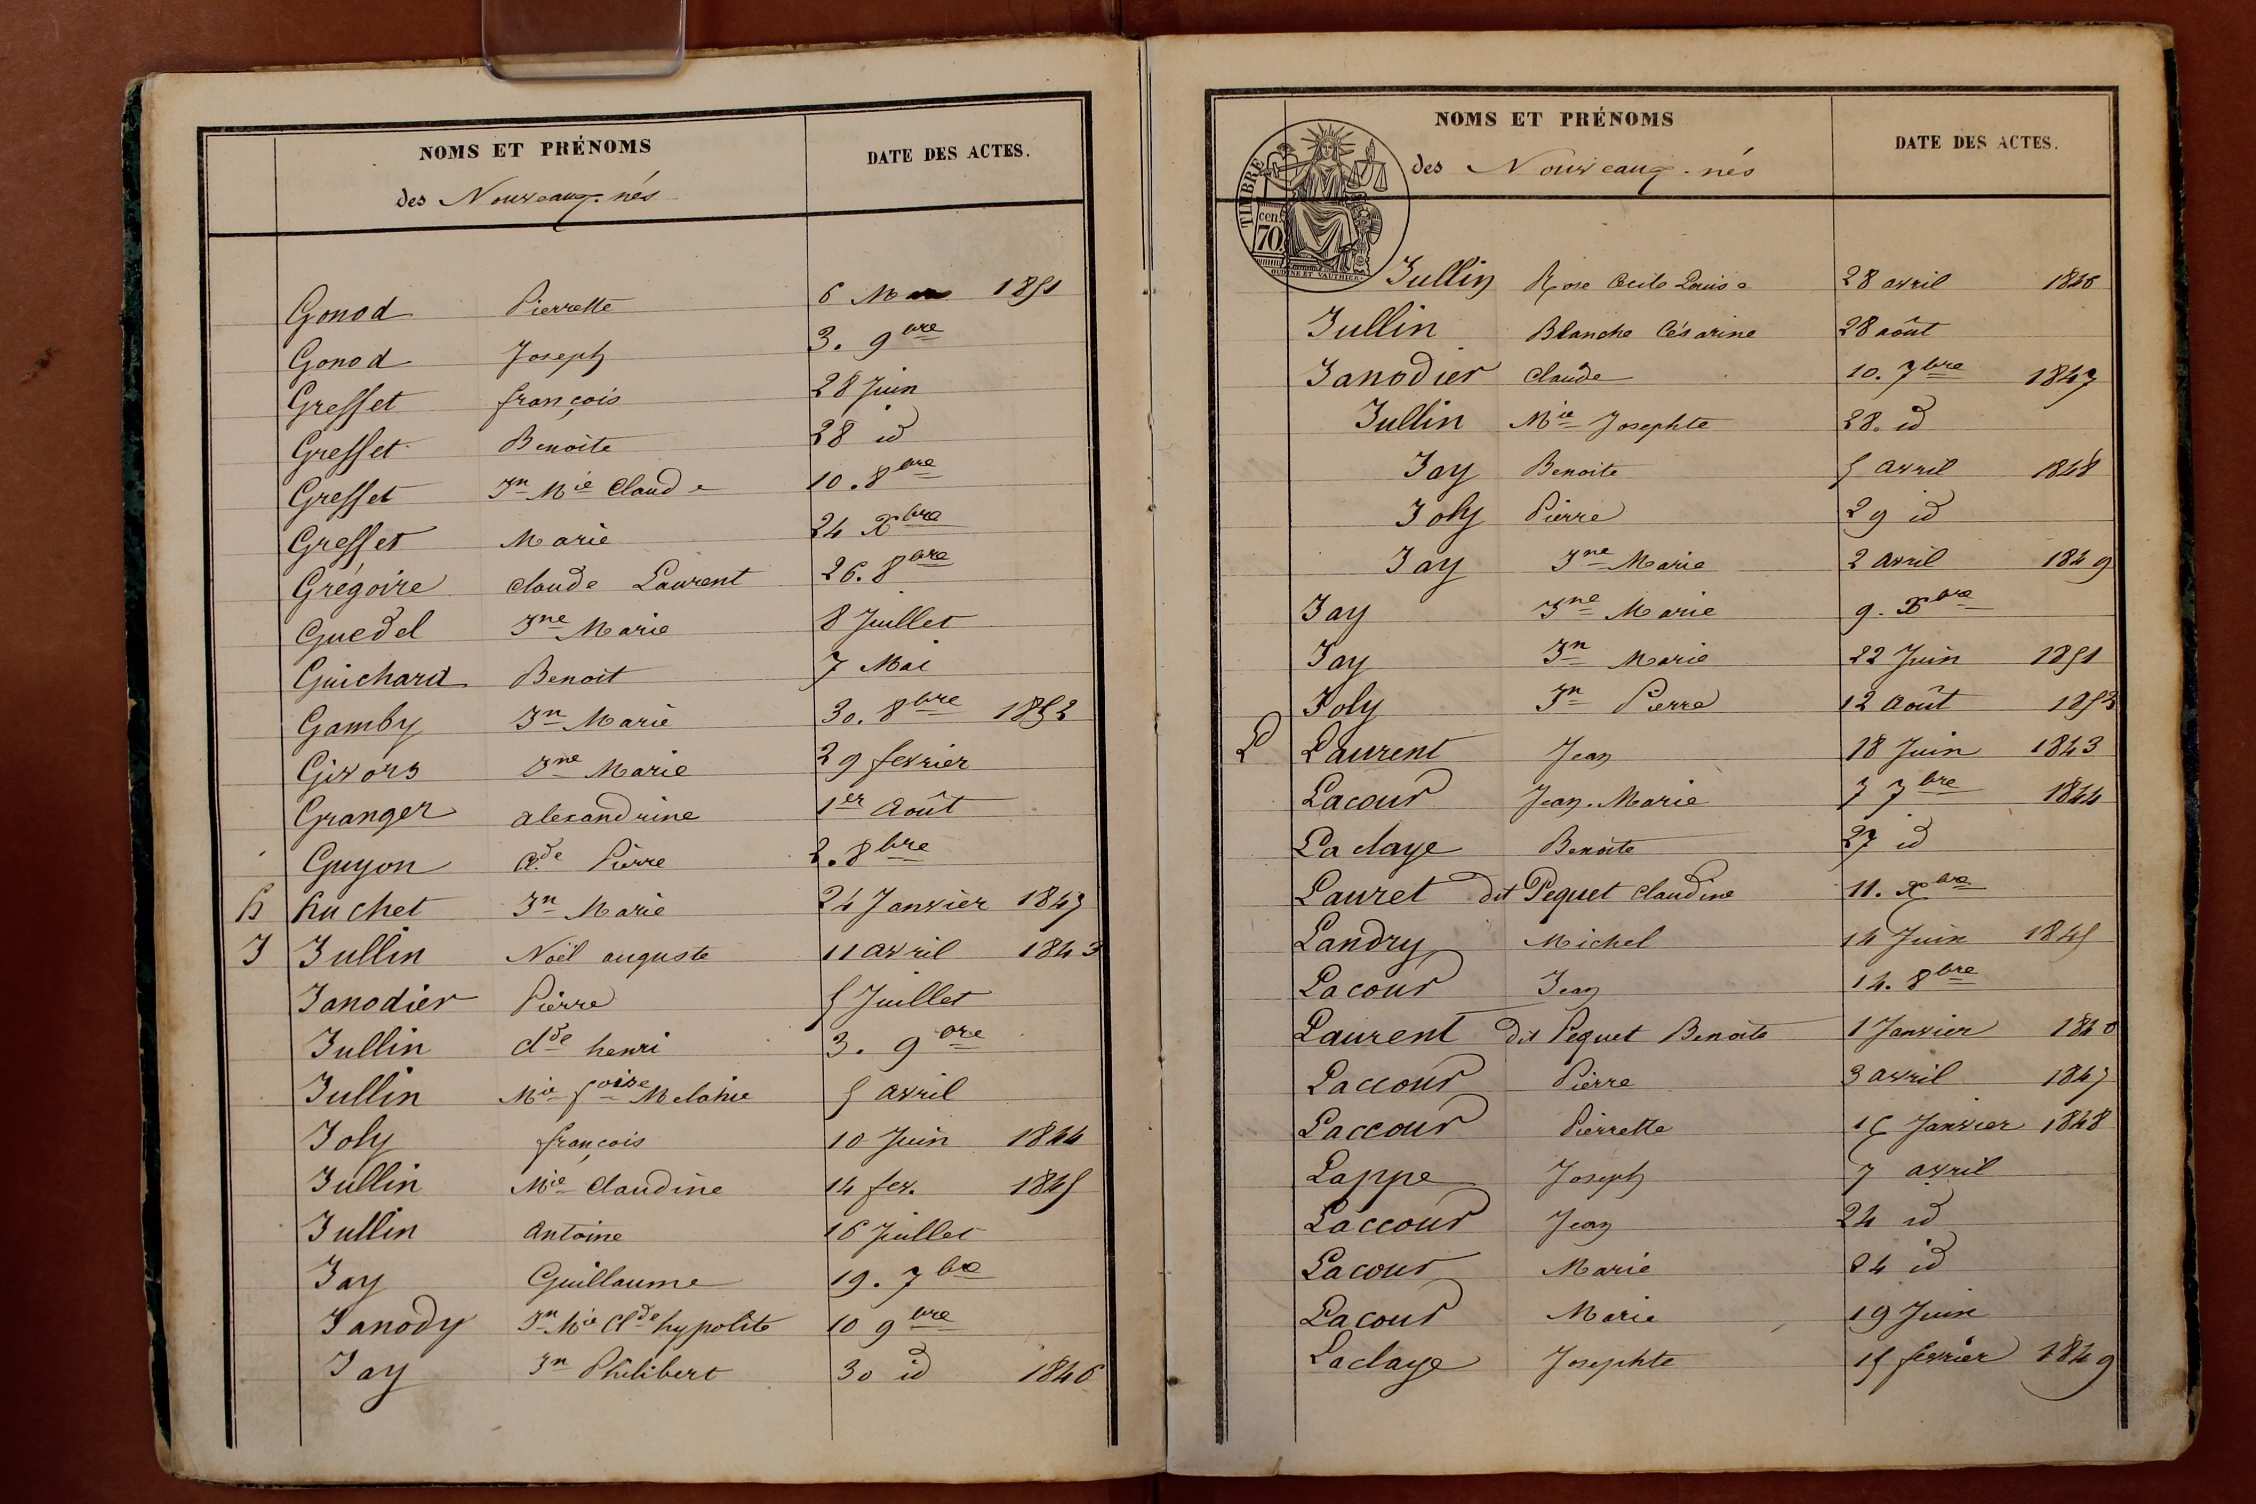 NOMS ET PRÉNOMS DATE DES ACTES.
des Nouveaux-nés
Gonod Pierrette 6 Mars 1851
Gonod Joseph 3. 9bre
Gresset françois 28 Juin
Gresset Benoite 28 id
Gresset Jn Mie Claude 10. 8bre
Gresset Marie 24 Xbre
Grégoire claude Laurent 26. 8bre
Guedel Jne Marie 8 Juillet
Guichard Benoit 7 Mai
Gamby Jn Marie 30. 8bre 1852
Givors Jne Marie 29 fevrier
Granger alexandrine 1er Août
Guyon Cde Pierre 2. 8bre
h huchet Jn Marie 24 Janvier 1847
J Jullin Noël auguste 11 avril 1843
Janodier Pierre 5 Juillet
Jullin Cde henri 3. 9bre
Jullin Mie foise Melanie 5 avril
Joly françois 10 Juin 1844
Jullin Mie Claudine 14 fev. 1845
Jullin antoine 16 Juillet
Jay Guillaume 19. 7bre
Janody Jn Mie Cde hypolite 10 9bre
Jay Jn Philibert 30 id 1846
NOMS ET PRÉNOMS DATE DES ACTES.
des Nouveaux-nés
TIMBRE
70 cen.
OUDINÉ ET VAUTHIER
Jullin Rose Cecile Louise 28 avril 1846
Jullin Blanche Césarine 28 août
Janodier claude 10. 7bre 1847
Jullin Mie Josephte 28. id
Jay Benoite 5 avril 1848
Joly Pierre 29 id
Jay Jne Marie 2 avril 1849
Jay Jne Marie 9. Xbre
Jay Jn Marie 22 Juin 1851
Joly Jn Pierre 12 Août 1853
L Laurent Jean 18 Juin 1843
Lacour Jean-Marie 7 7bre 1844
Laclaye Benoite 27 id
Lauret dit Pequet Claudine 11. Xbre
Landry Michel 14 Juin 1845
Lacour Jean 14. 8bre
Laurent dit Pequet Benoite 1 Janvier 1846
Laccour Pierre 3 avril 1847
Laccour Pierrette 15 Janvier 1848
Lappe Joseph 7 avril
Laccour Jean 24 id
Lacour Marie 24 id
Lacour Marie 19 Juin
Laclaye Josephte 15 fevrier 1849